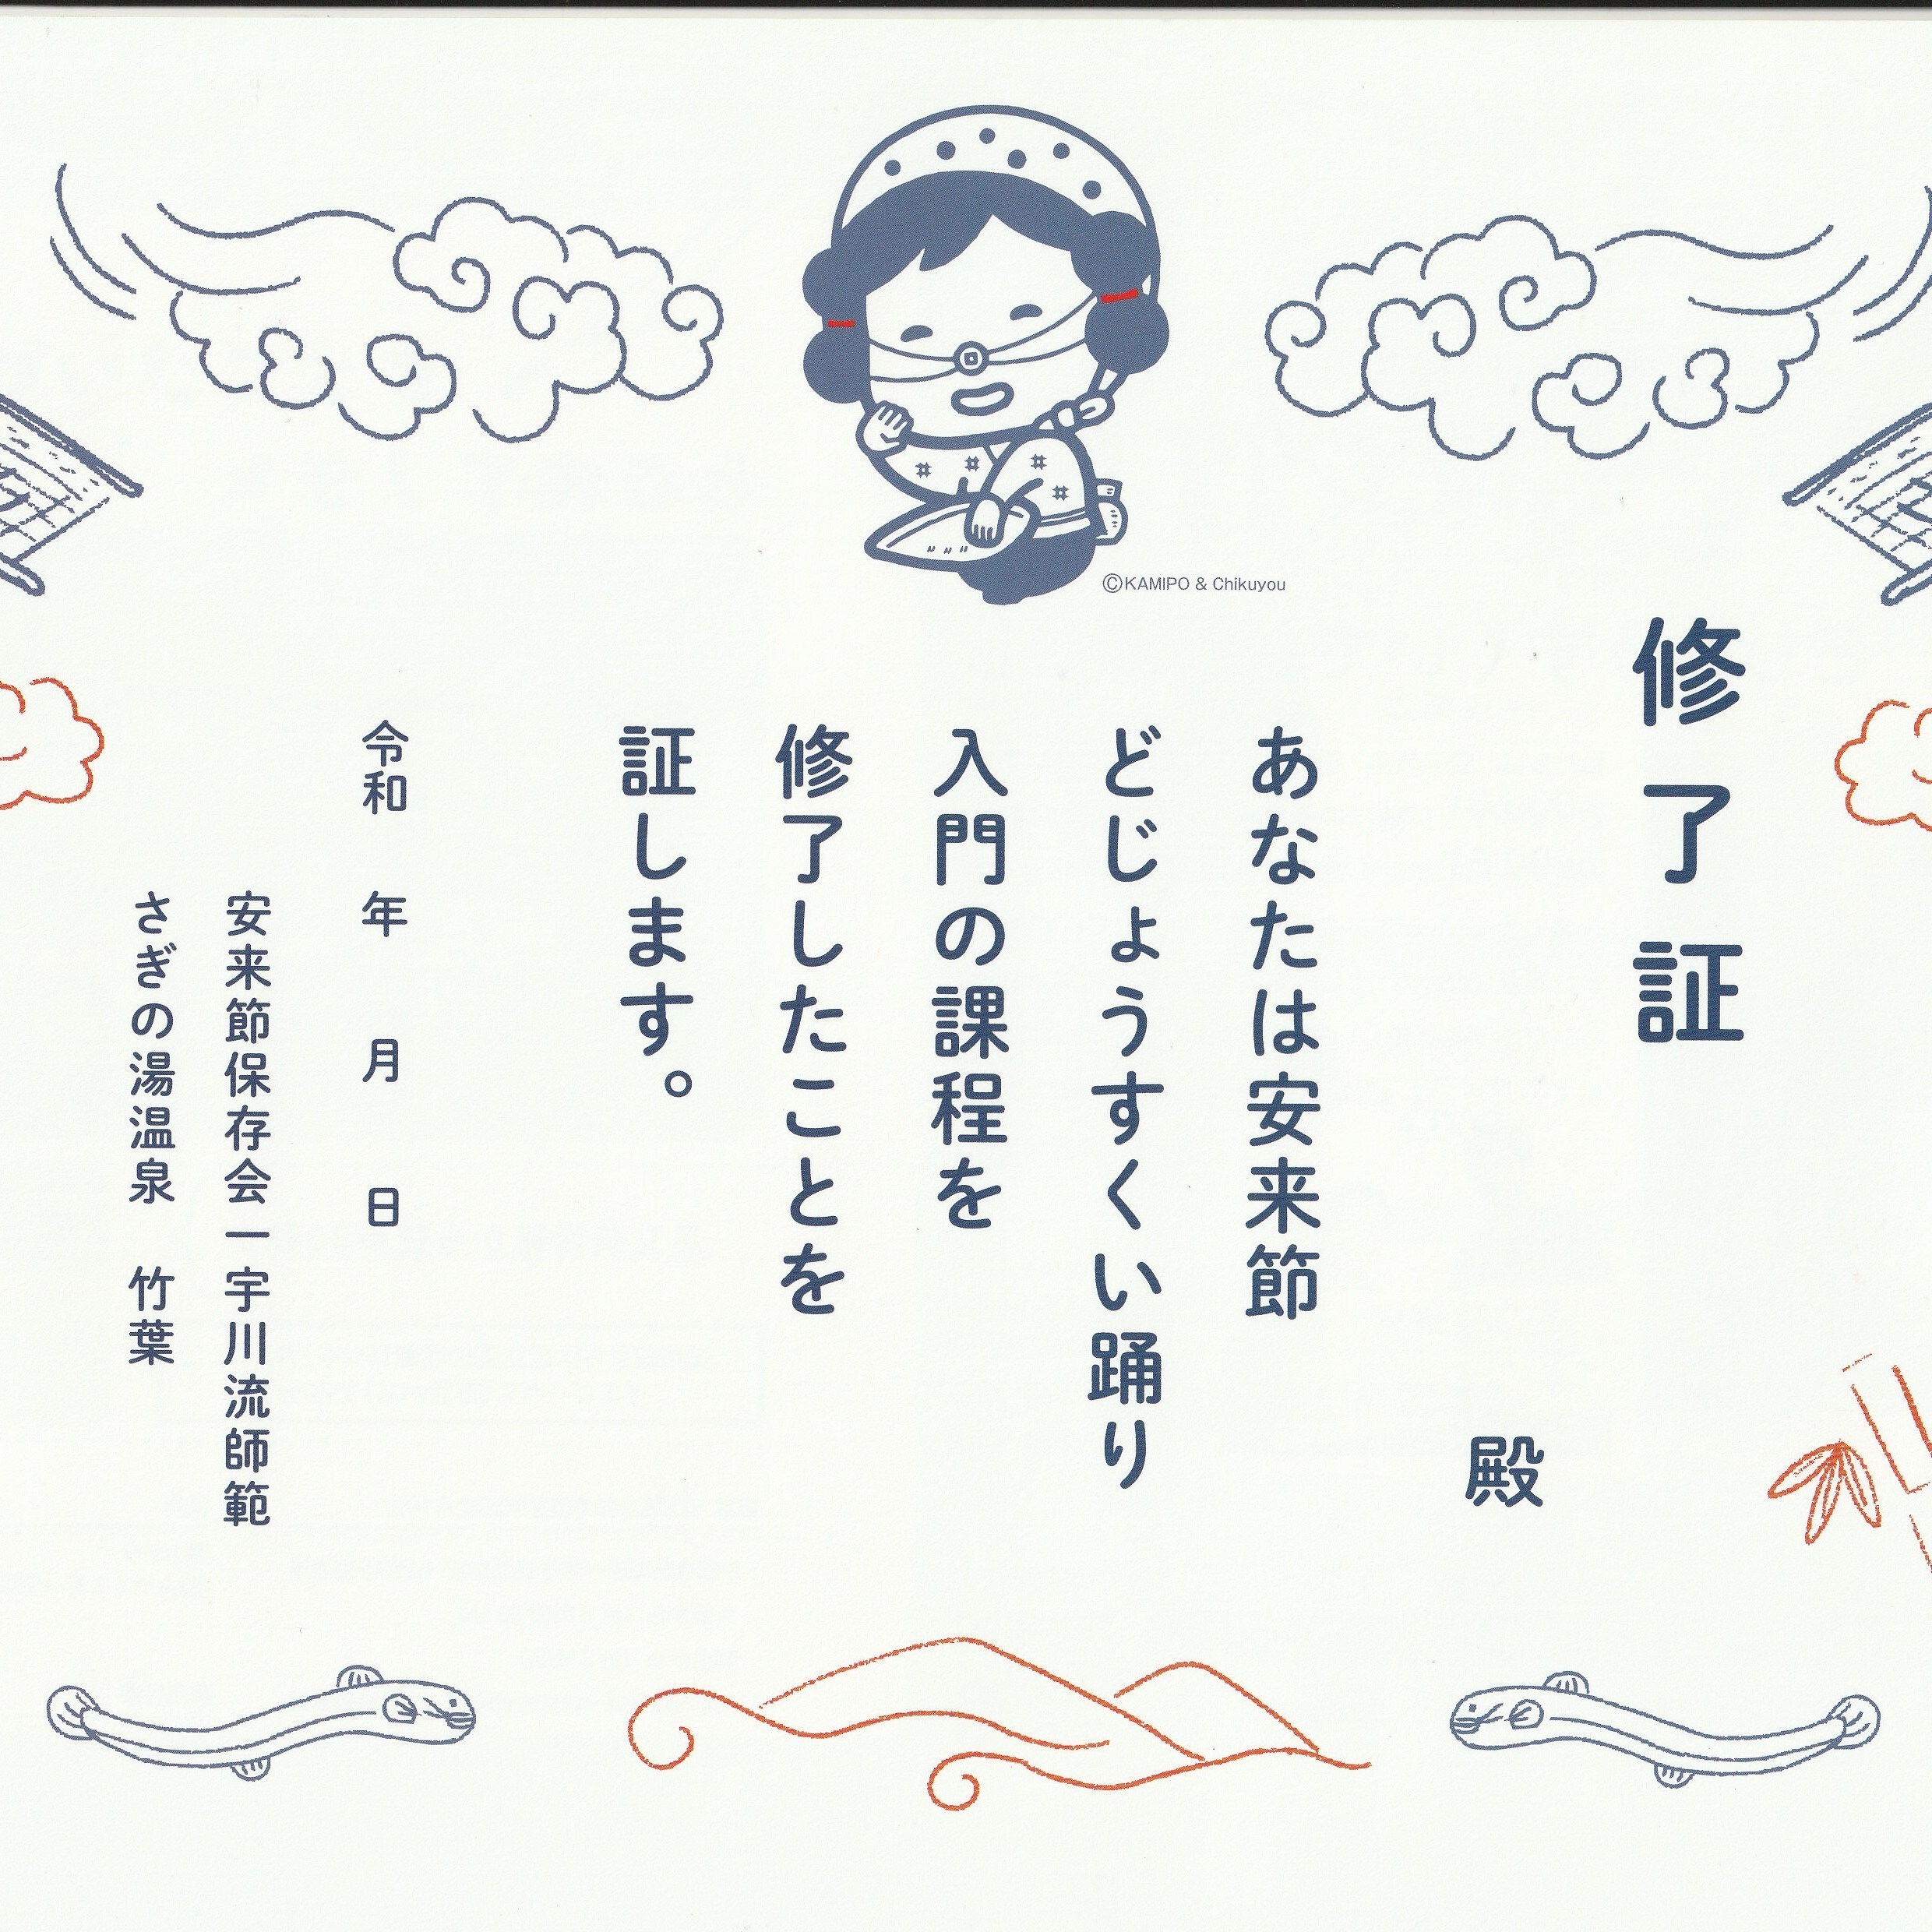 ©KAMIPO & Chikuyou
修了証
殿
あなたは安来節
どじょうすくい踊り
入門の課程を
修了したことを
証します。
令和 年 月 日
安来節保存会一宇川流師範
さぎの湯温泉 竹葉